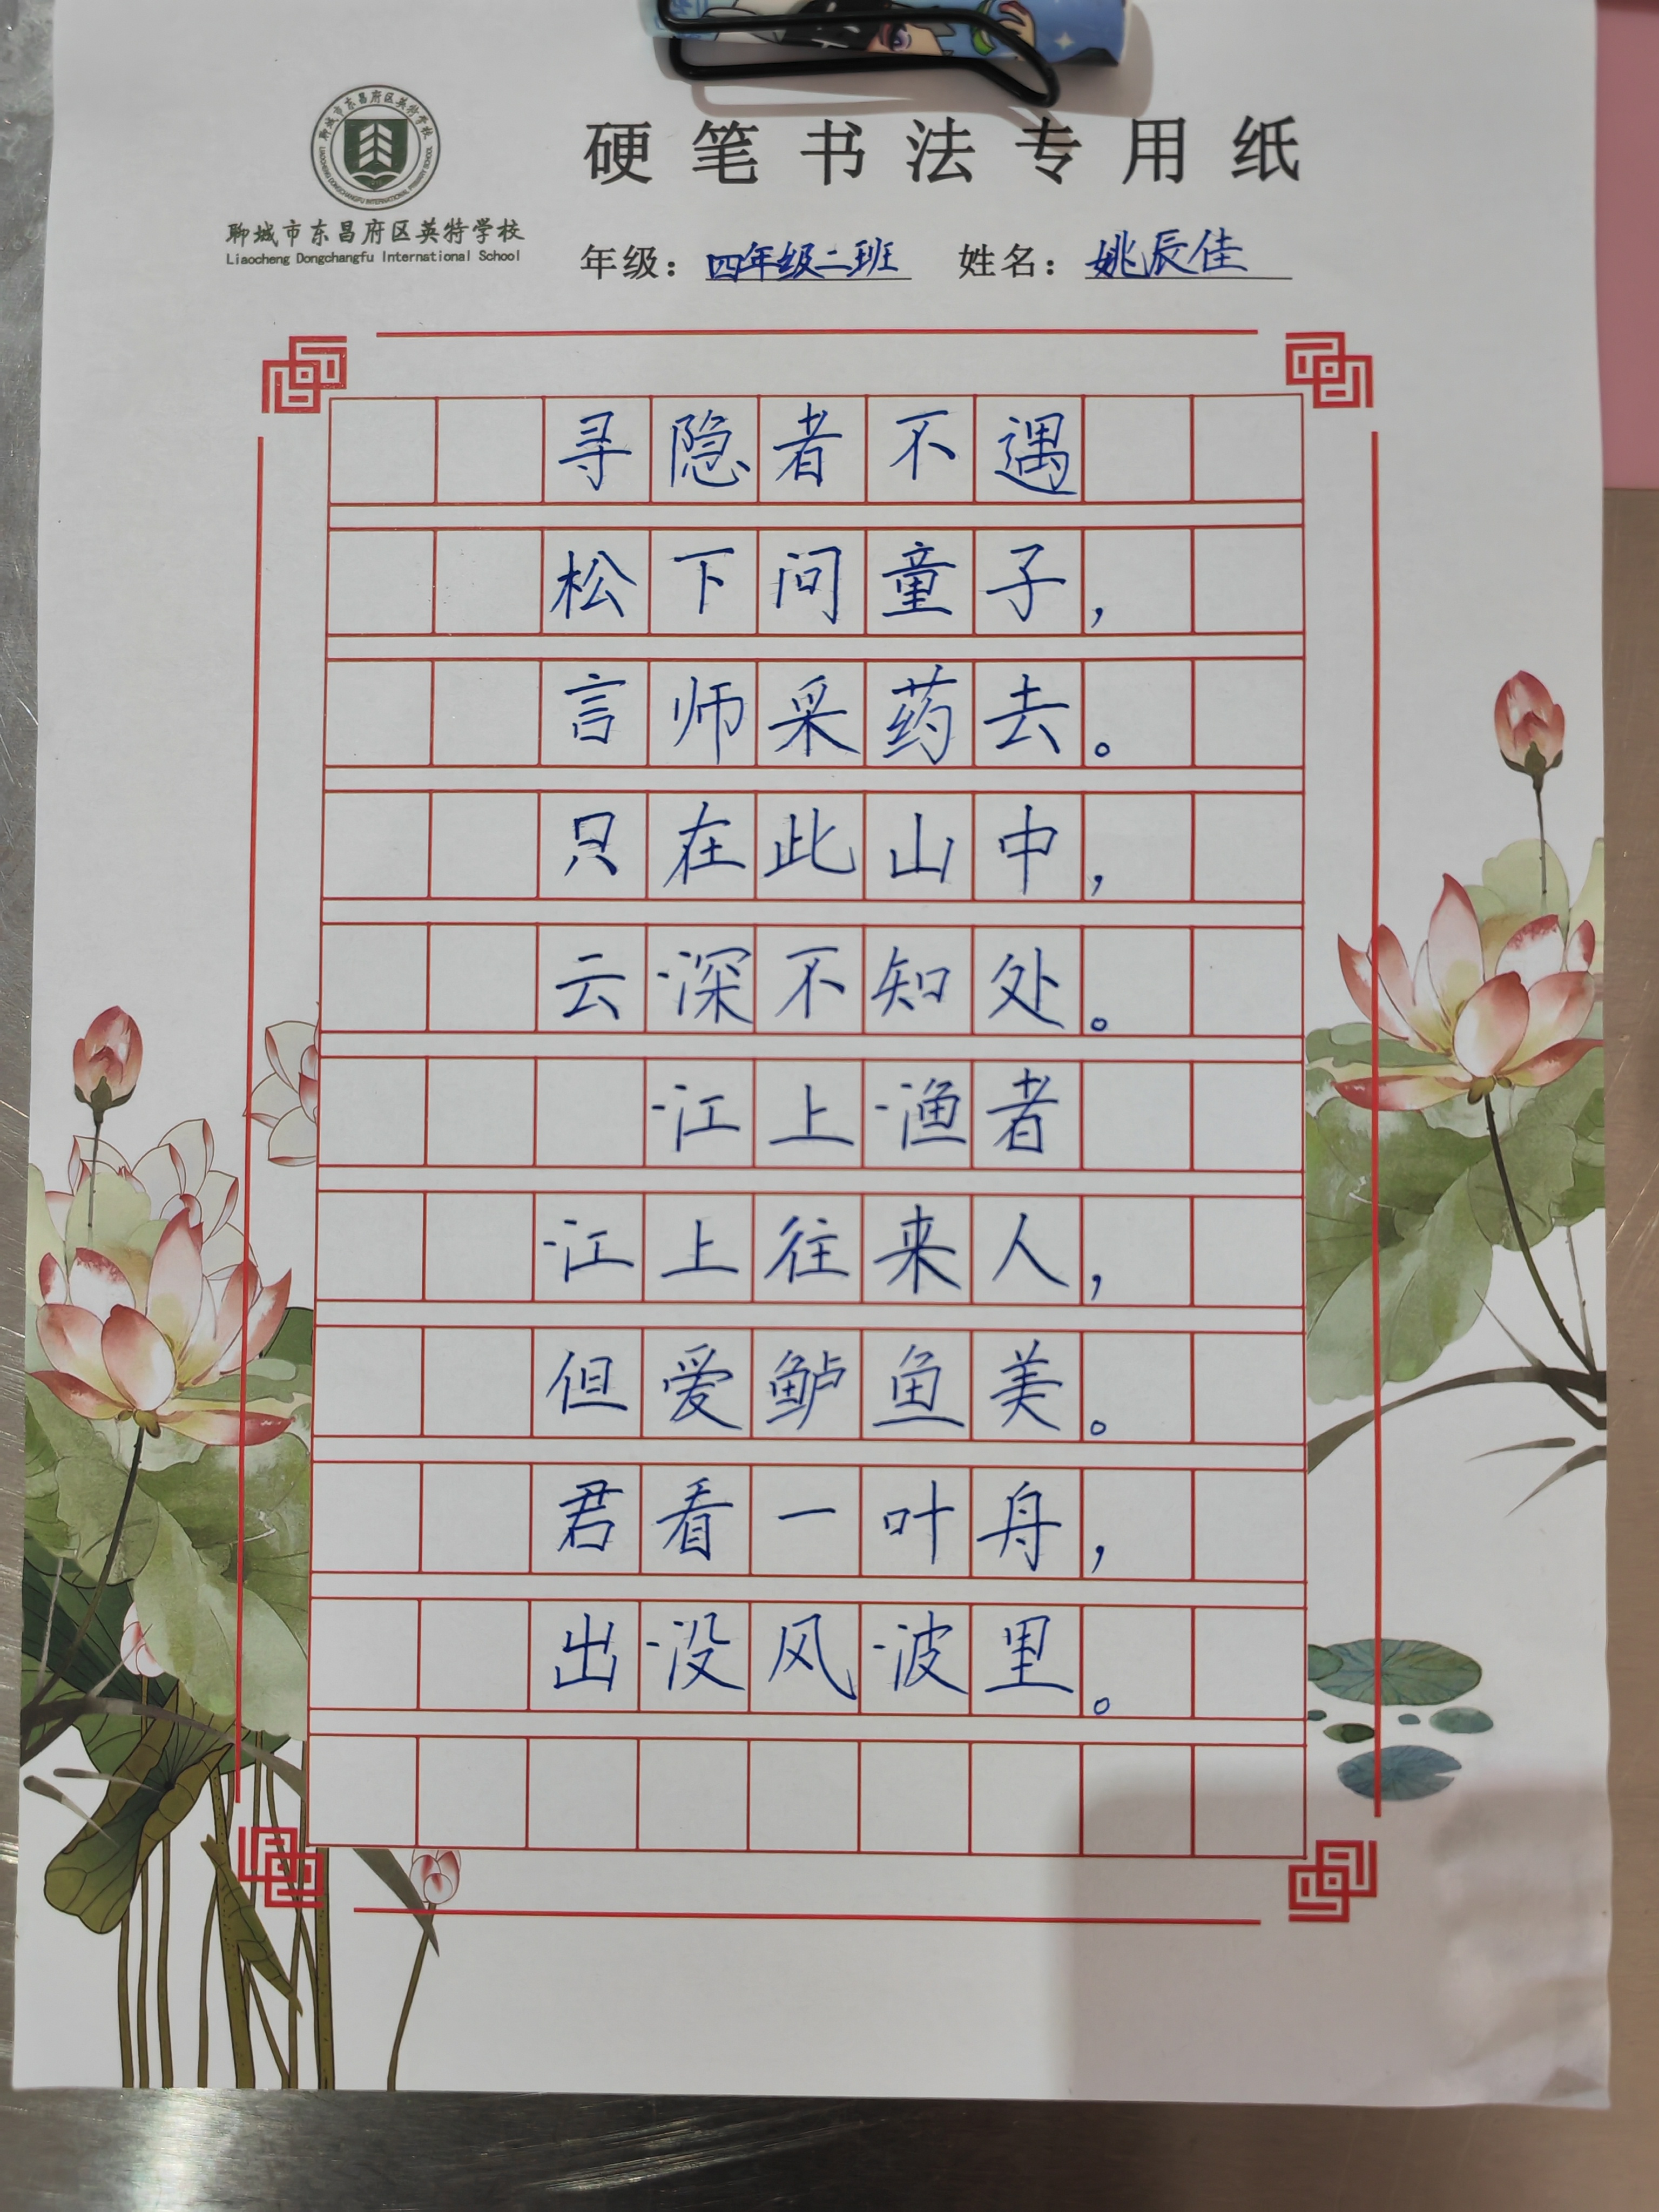 硬笔书法专用纸
聊城市东昌府区英特学校
LIAOCHENG DONGCHANGFU INTERNATIONAL PRIMARY SCHOOL
聊城市东昌府区英特学校
Liaocheng Dongchangfu International School
年级：四年级二班 姓名：姚辰佳
寻隐者不遇
松下问童子，
言师采药去。
只在此山中，
云深不知处。
江上渔者
江上往来人，
但爱鲈鱼美。
君看一叶舟，
出没风波里。